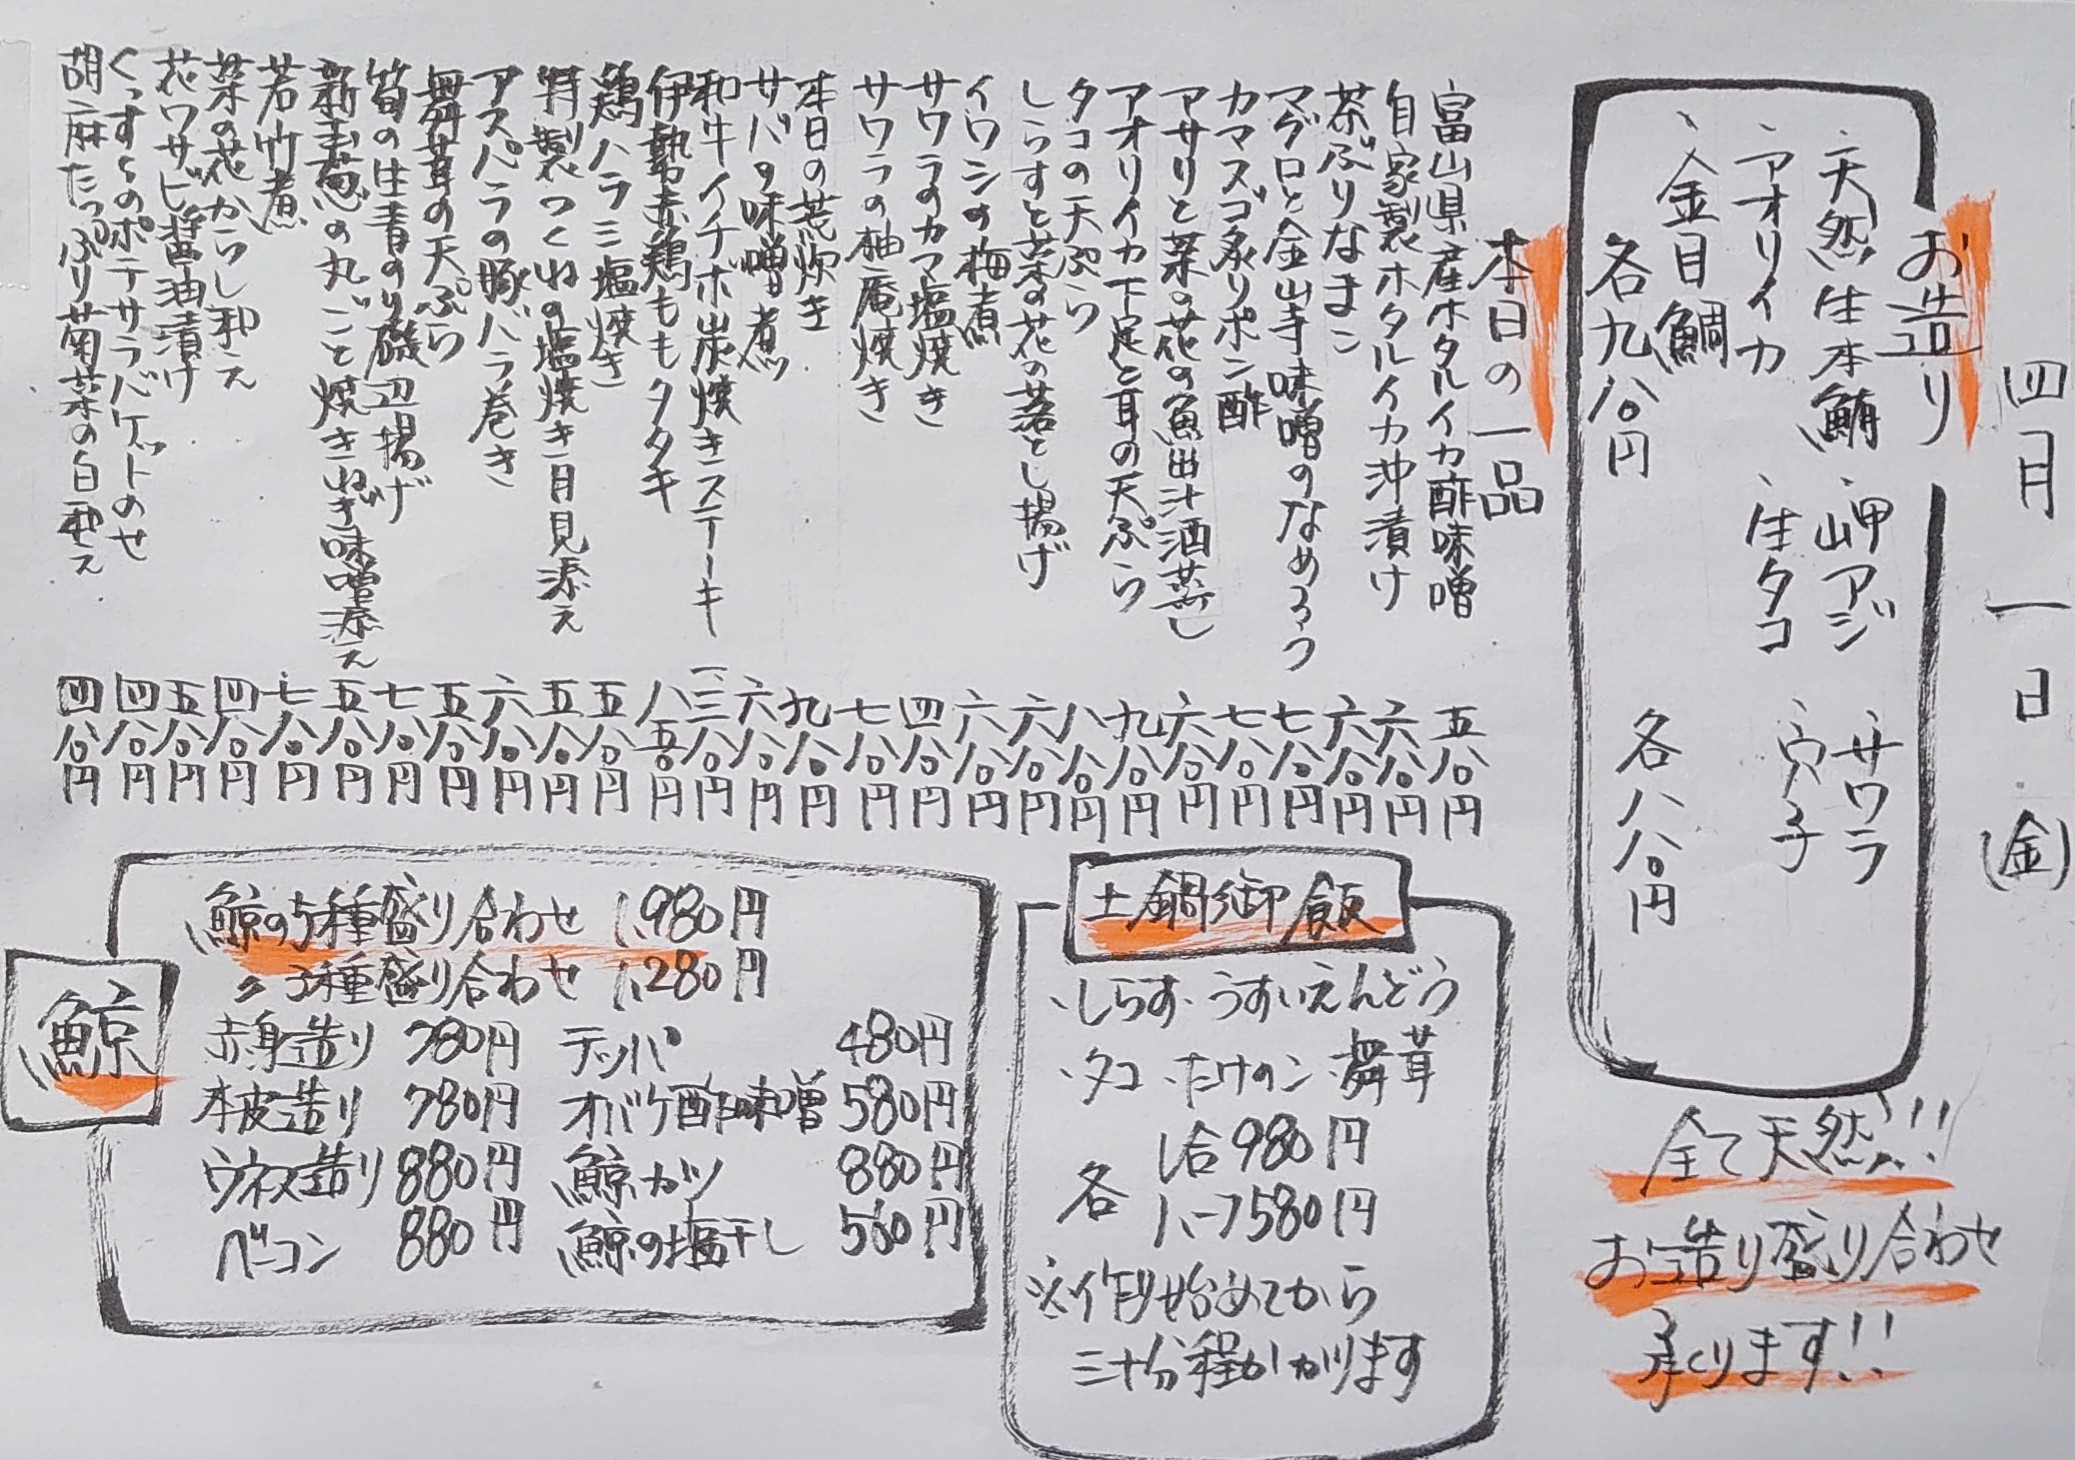 四月一日(金)
お造り
、天然生本鮪
、岬アジ
、サワラ
、アオリイカ
、生タコ
、穴子
、金目鯛
各九八〇円
各八八〇円
全て天然!!
お造り盛り合わせ
承ります!!
本日の一品
富山県産ホタルイカ酢味噌 五八〇円
自家製ホタルイカ沖漬け 六八〇円
茶ぶりなまこ 六八〇円
マグロと金山寺味噌のなめろう 七八〇円
カマスゴ炙りポン酢 七八〇円
アサリと菜の花の魚出汁酒蒸し 六八〇円
アオリイカ下足と耳の天ぷら 九八〇円
タコの天ぷら 八八〇円
しらすと菜の花の落とし揚げ 六八〇円
イワシの梅煮 六八〇円
サワラのカマ塩焼き 四八〇円
サワラの柚庵焼き 七八〇円
本日の荒炊き 九八〇円
サバの味噌煮 六八〇円
和牛イチボ炭焼きステーキ 一三八〇円
伊勢赤鶏ももタタキ 八五〇円
鶏ハラミ塩焼き 五八〇円
特製つくねの塩焼き月見添え 五八〇円
アスパラの豚バラ巻き 六八〇円
舞茸の天ぷら 五八〇円
筍の生青のり磯辺揚げ 七八〇円
新玉葱の丸ごと焼きねぎ味噌添え 五八〇円
若竹煮 七八〇円
菜の花からし和え 四八〇円
花ワサビ醤油漬け 五八〇円
くっすぅのポテサラバゲットのせ 四八〇円
胡麻たっぷり菊菜の白和え 四八〇円
土鍋御飯
・しらす・うすいえんどう
・タコ・たけのこ・舞茸
各
1合980円
ハーフ580円
※作り始めてから
三十分程かかります
鯨
鯨の5種盛り合わせ 1,980円
〃3種盛り合わせ 1,280円
赤身造り 780円 テッパ 480円
本皮造り 780円 オバケ酢味噌 580円
ウネス造り 880円 鯨カツ 880円
ベーコン 880円 鯨の塩干し 560円